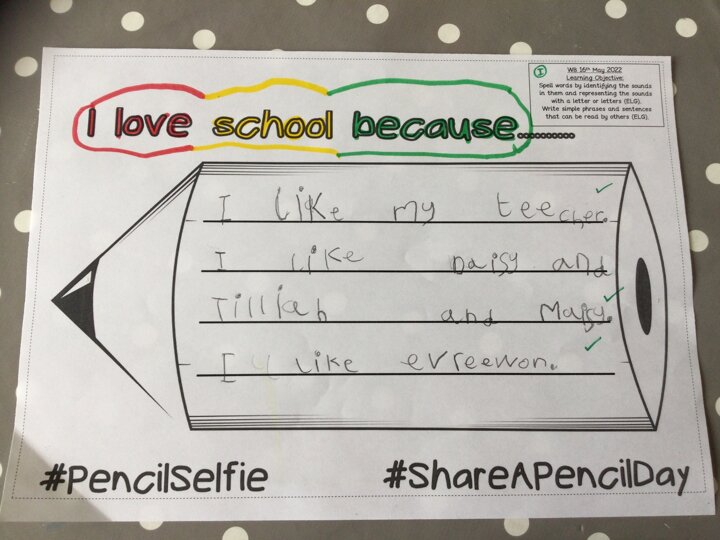 I
WB 16th May 2022
Learning Objective:
Spell words by identifying the sounds
in them and representing the sounds
with a letter or letters (ELG).
Write simple phrases and sentences
that can be read by others (ELG).
I love school because..........
I like my teecher.
I like Daisy and
Tilliah and Maisy.
I like evreewon.
#PencilSelfie
#ShareAPencilDay